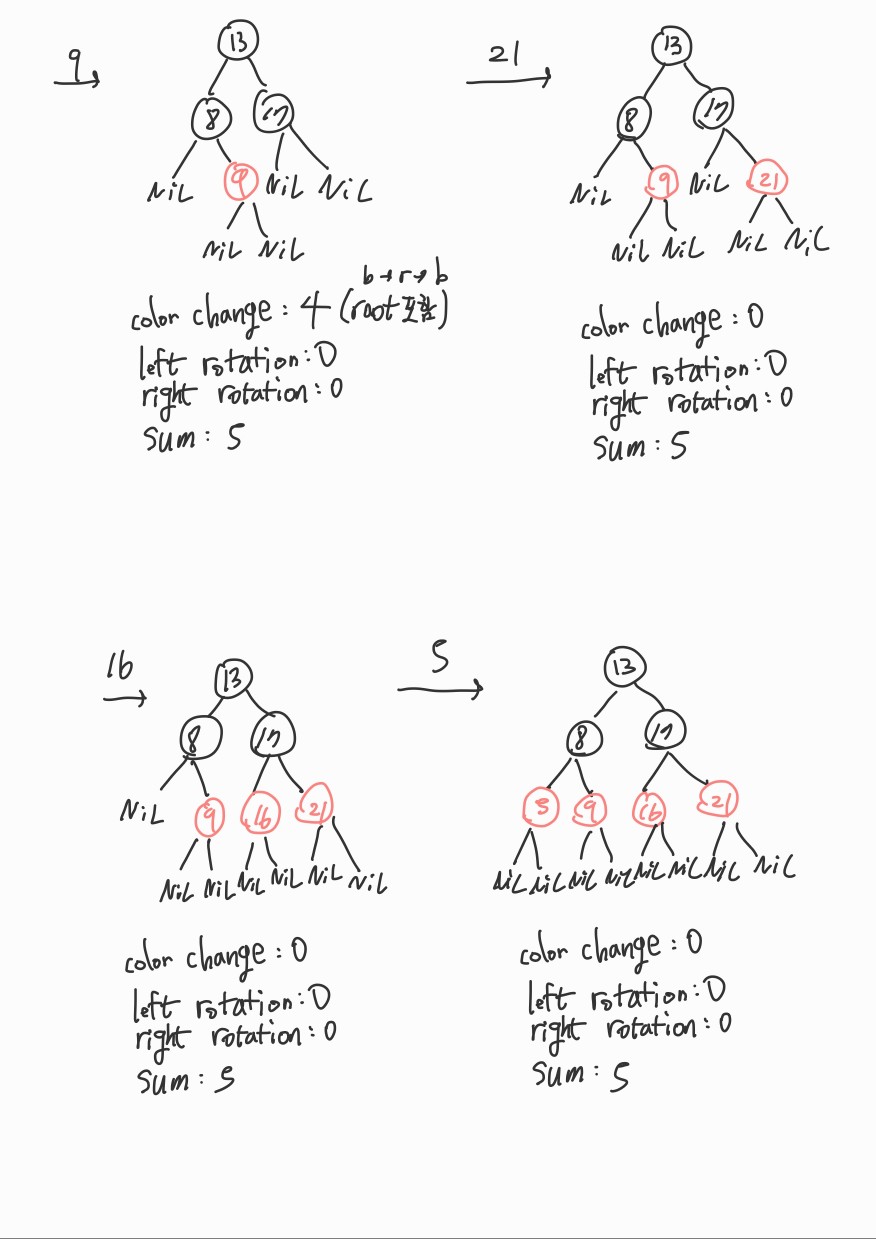 9
13
8 17
NiL 9 NiL NiL
NiL NiL
b→r→b
color change : 4 (root 포함)
left rotation : 0
right rotation : 0
sum : 5
21
13
8 17
NiL 9 NiL 21
NiL NiL NiL NiL
color change : 0
left rotation : 0
right rotation : 0
sum : 5
16
13
8 17
NiL 9 16 21
NiL NiL NiL NiL NiL NiL
color change : 0
left rotation : 0
right rotation : 0
sum : 5
5
13
8 17
5 9 16 21
NiL NiL NiL NiL NiL NiL NiL NiL
color change : 0
left rotation : 0
right rotation : 0
sum : 5